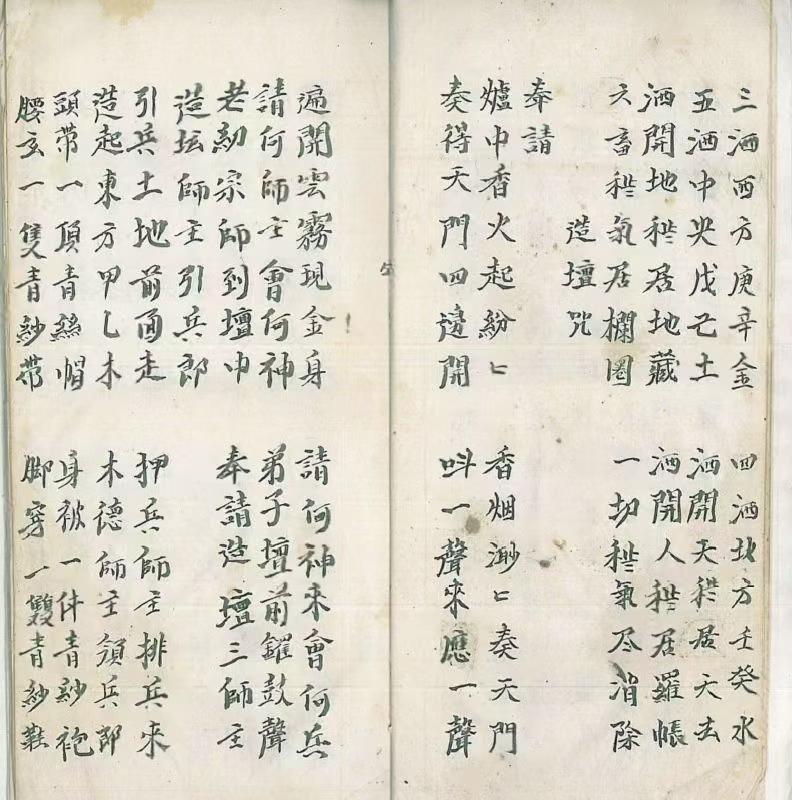 三洒西方庚辛金　四洒北方壬癸水
五洒中央戊己土　洒開天秽居天去
洒開地秽居地藏　洒開人秽居羅帳
六畜秽氣居欄圈　一切秽氣尽消除
造壇咒
奉請
爐中香火起紛匕　香烟渺匕奏天門
奏得天門四邊開　呌一聲來應一聲
遍開雲霧現金身　請何神來會何兵
請何師主會何神　弟子壇前鑼鼓聲
老幼宗師到壇中　奉請造壇三師主
造坛師主引兵郎
引兵土地前面走　押兵師主排兵來
造起東方甲乙木　木德師主領兵郎
頭帶一頂青絲帽　身被一件青紗袍
腰玄一隻青紗帶　脚穿一雙青紗鞋